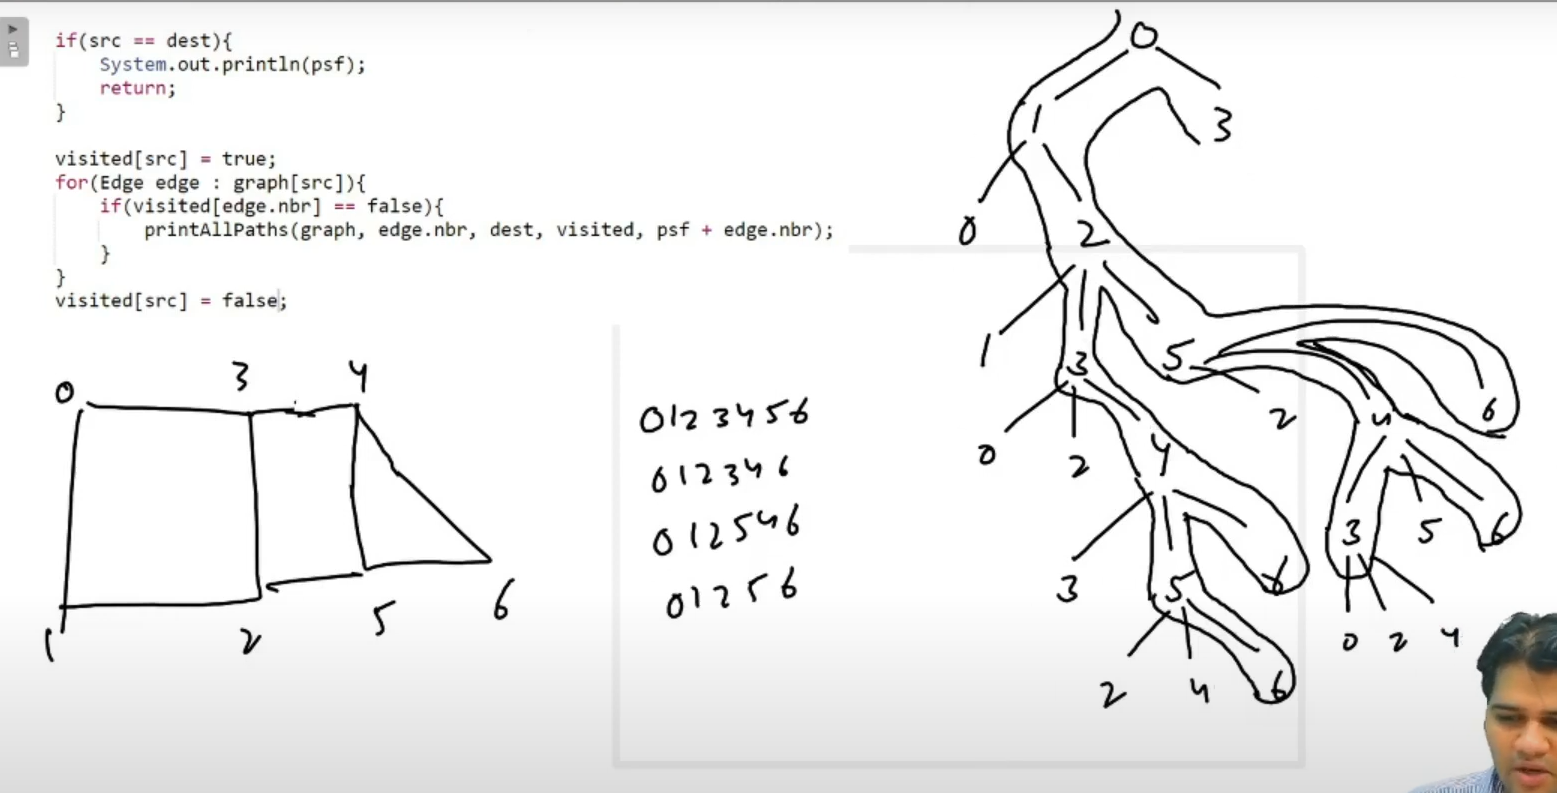 if(src == dest){
System.out.println(psf);
return;
}
visited[src] = true;
for(Edge edge : graph[src]){
if(visited[edge.nbr] == false){
printAllPaths(graph, edge.nbr, dest, visited, psf + edge.nbr);
}
}
visited[src] = false;
0 3 4
1 2 5 6
0123456
012346
012546
01256
0
1 3
0 2
1 3 5 2 4 6
0 2 4 3 5 6
3 5 6 0 2 4
2 4 6